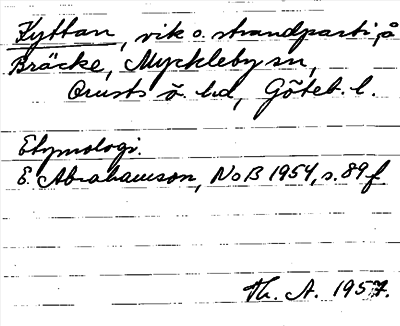 Kyttan, vik o. strandparti, å
Bräcke, Myckleby sn,
Orusts ö. hd, Göteb. l.
Etymologi.
E. Abrahamson, NoB 1954, s. 89 f
Th. A. 1957.